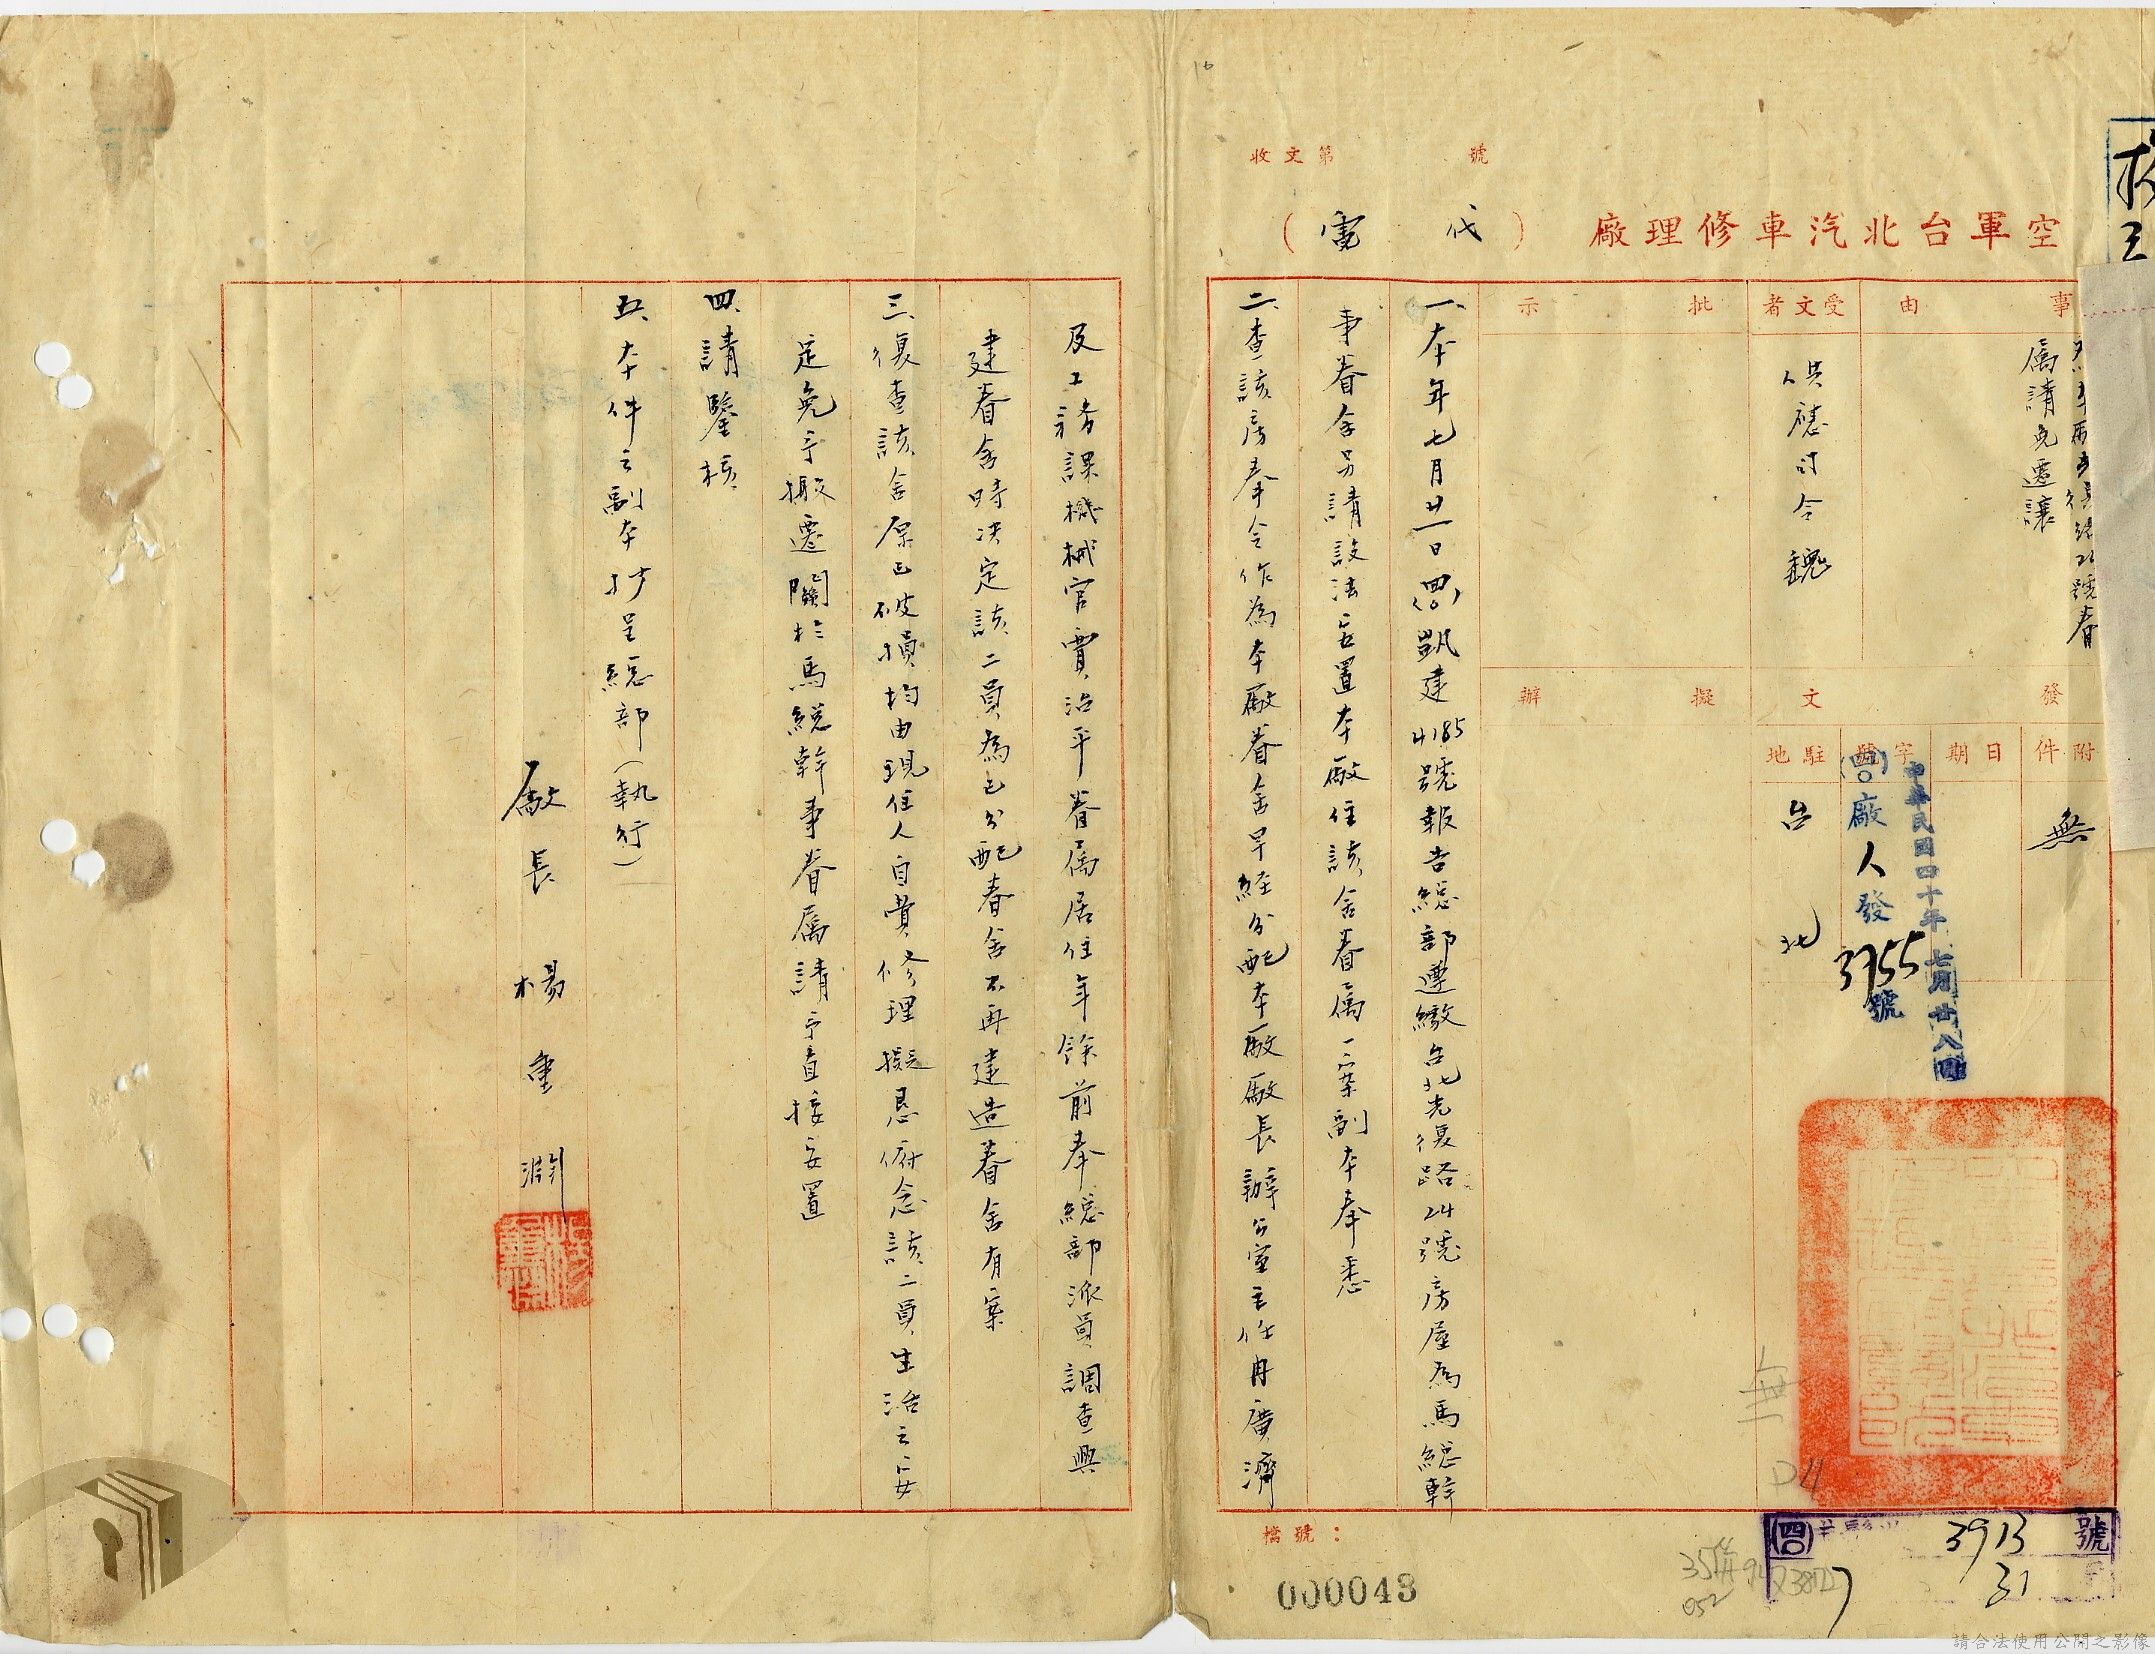 收文第　號
空軍台北汽車修理廠（代電）
事由
屬請免遷讓
受文者
供應司令魏
批示
擬辦
發文
附件
無
日期
中華民國四十年七月廿八日
字號
(四〇)廠人發3755號
駐地
台北
一、本年七月廿一日(四〇)凱建4185號報告總部遵繳台北光復路24號房屋為馬總幹
事眷舍另請設法安置本廠住該舍眷屬一案副本奉悉
二、查該房奉令作為本廠眷舍早經分配本廠廠長辦公室主任冉廣濟
及工務課機械官賈治平眷屬居住年餘前奉總部派員調查興
建眷舍時決定該二員為已分配眷舍不再建造眷舍有案
三、復查該舍原已破損均由現住人自費修理擬懇俯念該二員生活之安
定免予搬遷關於馬總幹事眷屬請予直接安置
四、請鑒核
五、本件之副本抄呈總部(執行)
廠長楊重淵
檔號：
000043
(四〇)
3913
號
7
31
無
D4
請合法使用公開之影像